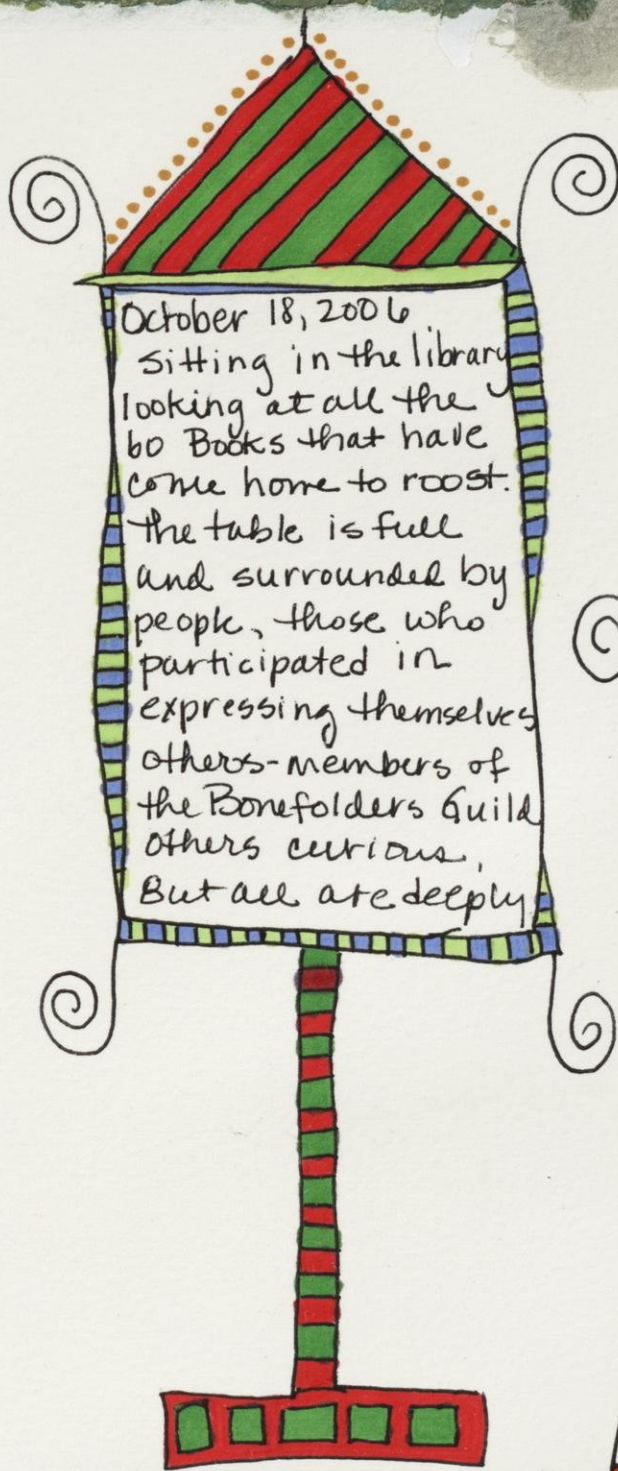 October 18, 2006
Sitting in the library
looking at all the
60 Books that have
come home to roost.
the table is full
and surrounded by
people, those who
participated in
expressing themselves
others-members of
the Bonefolders Guild
others curious,
But all are deeply